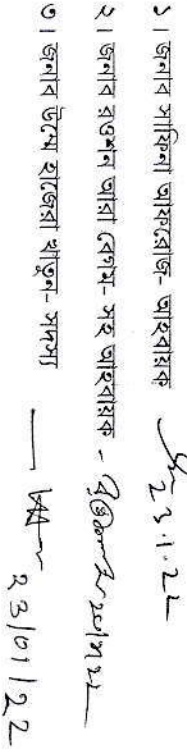 ১। জনাব সাফিনা আফরোজ- আহবায়ক 23.1.22
২। জনাব রওশন আরা বেগম- সহ আহবায়ক -
৩। জনাব উম্মে হাজেরা খাতুন- সদস্য — 23/01/22